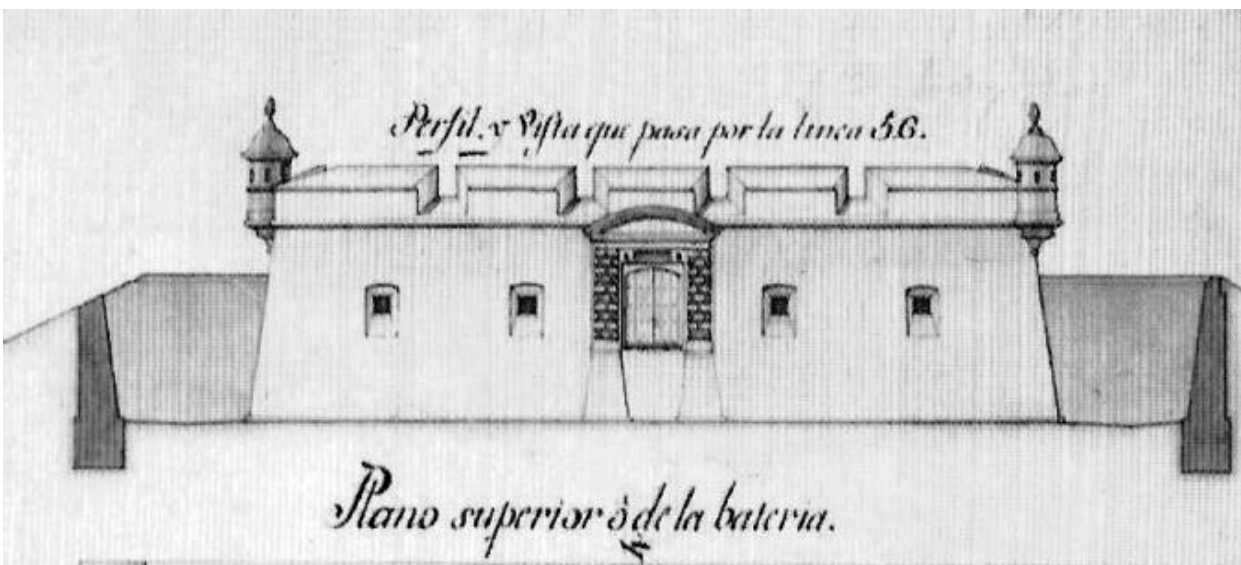 Perfil. y Vista que pasa por la linea 5.6.
Plano superior ò de la bateria.